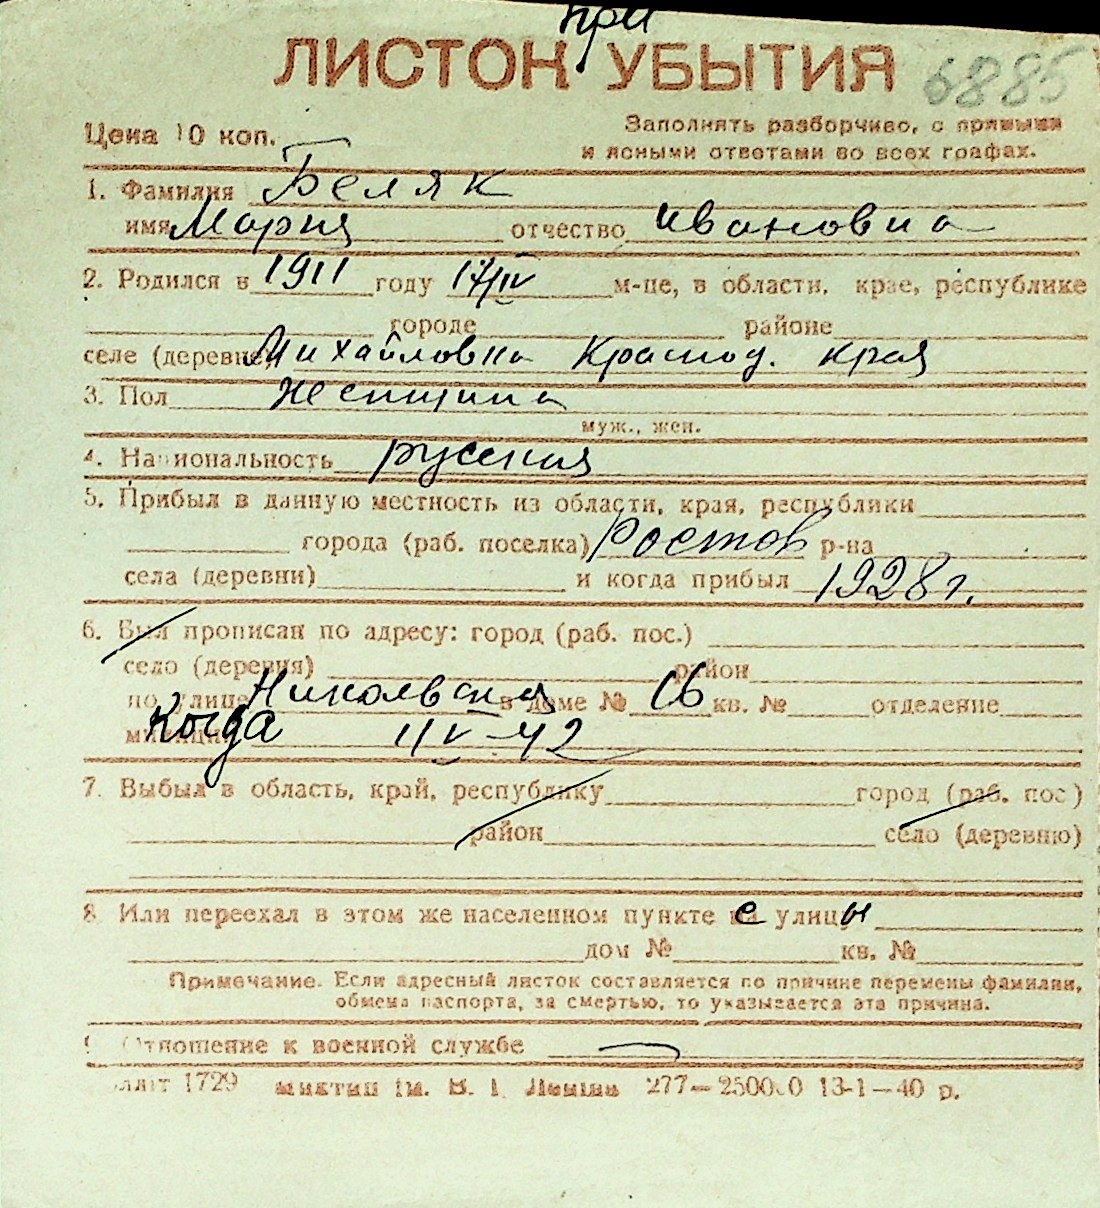 при
ЛИСТОК УБЫТИЯ 6885
Цена 10 коп.
Заполнять разборчиво, с прямыми
и ясными ответами во всех графах.
1. Фамилия Беляк
имя Мария отчество Ивановна
2. Родился в 1911 году 17/IV м-це, в области, крае, республике
городе районе
селе (деревне) Михайловка Краснод. края
3. Пол женщина
муж., жен.
4. Национальность русская
5. Прибыл в данную местность из области, края, республики
города (раб. поселка) Ростов р-на
села (деревни) и когда прибыл 1928 г.
6. Был прописан по адресу: город (раб. пос.)
село (деревня) район
по улице Никольская в доме № кв. № отделение
милиции Когда 42
7. Выбыл в область, край, республику город (раб. пос.)
район село (деревню)
8 Или переехал в этом же населенном пункте с улицы
дом № кв. №
Примечание. Если адресный листок составляется по причине перемены фамилии,
обмена паспорта, за смертью, то указывается эта причина.
9. Отношение к военной службе
1729 им. В. І. Леніна 277—250000 13-1—40 р.